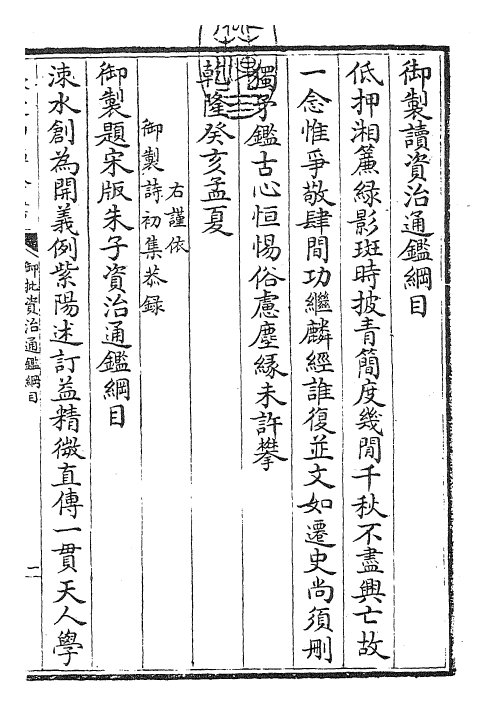 御製讀資治通鑑綱目
低押湘簾綠影斑時披青簡度幾閒千秋不盡興亡故
一念惟爭敬肆間功繼麟經誰復並文如遷史尚須刪
獨矛鑑古心恒惕俗慮塵緣未許攀
乾隆癸亥孟夏
右謹依
御製詩初集恭録
御製題宋版朱子資治通鑑綱目
涑水創為開義例紫陽述訂益精微直傳一貫天人學
御批資治通鑑綱目
二